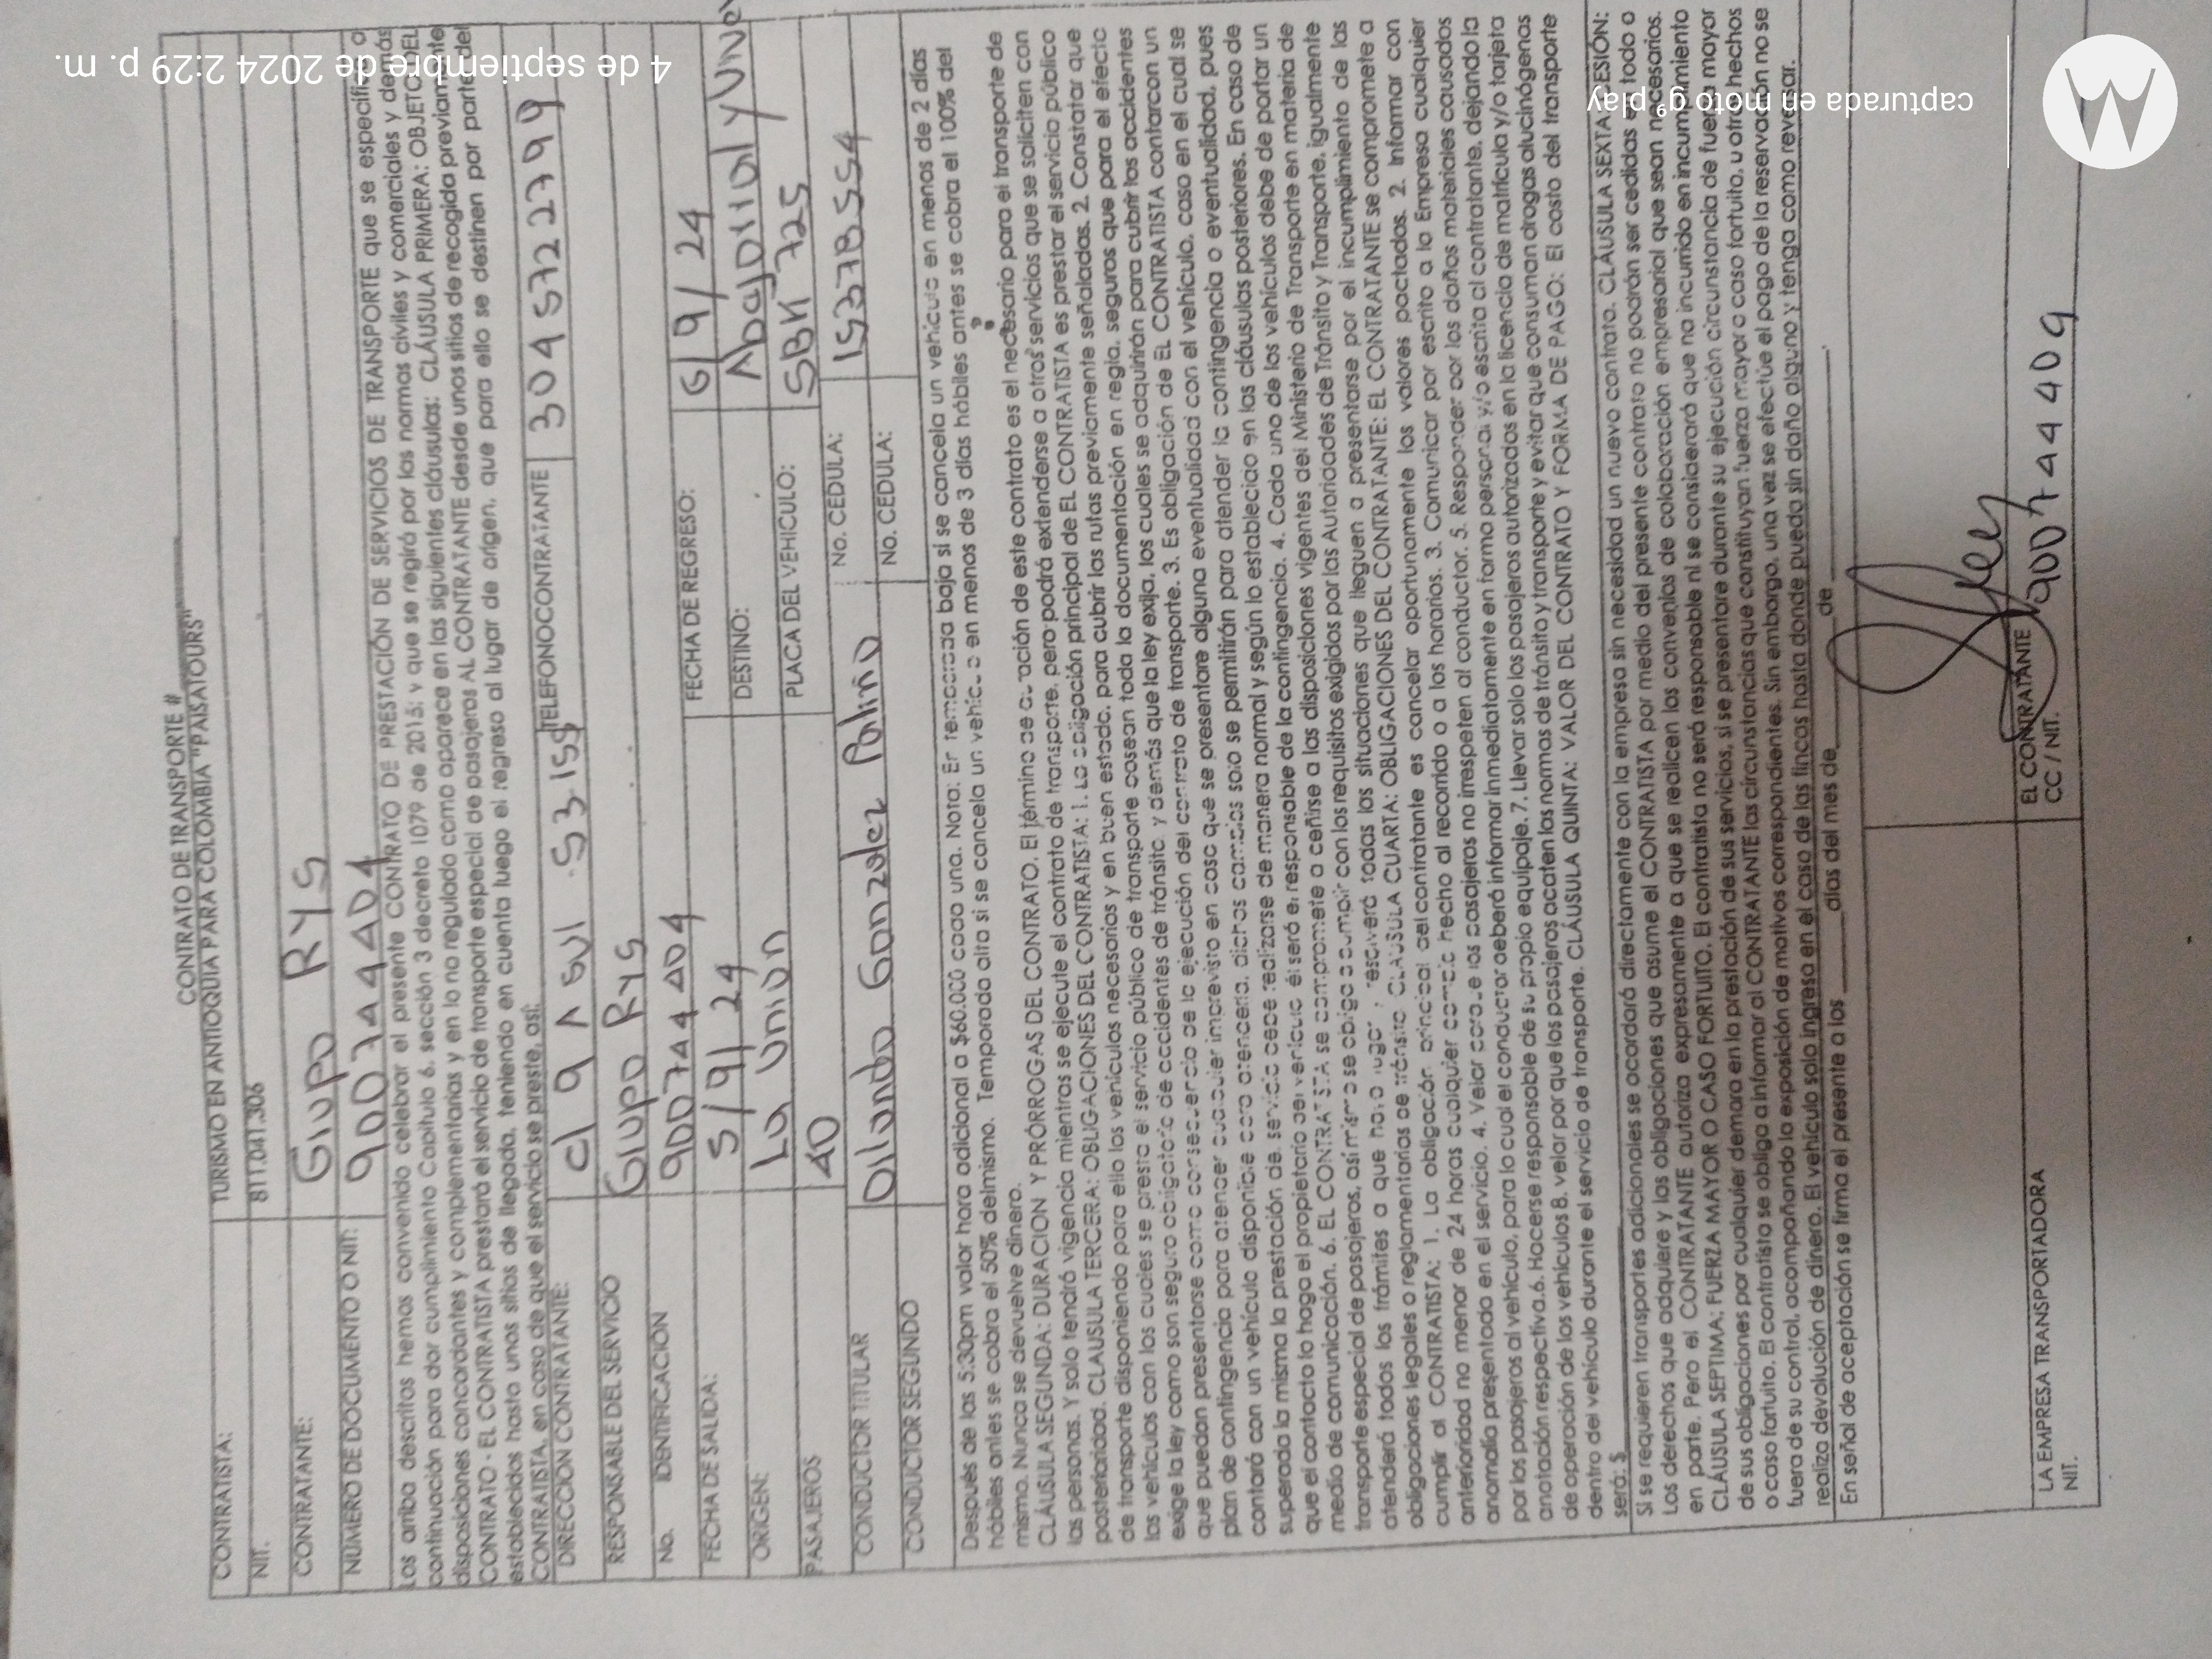 CONTRATO DE TRANSPORTE #
TURISMO EN ANTIOQUIA PARA COLOMBIA "PAISATOURS"
CONTRATISTA:
NIT. 811.041.306
CONTRATANTE: Grupo RYS
NUMERO DE DOCUMENTO O NIT: 900744404
Los arriba descritos hemos convenido celebrar el presente CONTRATO DE PRESTACIÓN DE SERVICIOS DE TRANSPORTE que se especifica a
continuación para dar cumplimiento Capitulo 6, sección 3 decreto 1079 de 2015; y que se regirá por las normas civiles y comerciales y demás
disposiciones concordantes y complementarias y en lo no regulado como aparece en las siguientes cláusulas: CLÁUSULA PRIMERA: OBJETO DEL
CONTRATO - EL CONTRATISTA prestará el servicio de transporte especial de pasajeros AL CONTRATANTE desde unos sitios de recogida previamente
establecidos hasta unos sitios de llegada, teniendo en cuenta luego el regreso al lugar de origen, que para ello se destinen por parte del
CONTRATISTA, en caso de que el servicio se preste, así:
DIRECCION CONTRATANTE: cl 9 A sul 53 155 TELEFONOCONTRATANTE 3045722799
RESPONSABLE DEL SERVICIO Grupo RYS
No. IDENTIFICACION 900744404
FECHA DE SALIDA: 5/9/24 FECHA DE REGRESO: 6/9/24
ORIGEN: La Unión DESTINO:
PASAJEROS 40 PLACA DEL VEHICULO: SBK 725
CONDUCTOR TITULAR Orlando Gonzalez Patiño No. CEDULA: 15378554
CONDUCTOR SEGUNDO No. CEDULA:
Después de las 5:30pm valor hora adicional a $60.000 cada una. Nota: En temporada baja si se cancela un vehículo en menos de 2 días
hábiles antes se cobra el 50% delmismo. Temporada alta si se cancela un vehículo en menos de 3 días hábiles antes se cobra el 100% del
mismo. Nunca se devuelve dinero.
CLÁUSULA SEGUNDA: DURACION Y PRÓRROGAS DEL CONTRATO. El término de duración de este contrato es el necesario para el transporte de
las personas. Y solo tendrá vigencia mientras se ejecute el contrato de transporte, pero podrá extenderse a otros servicios que se soliciten con
posterioridad. CLAUSULA TERCERA: OBLIGACIONES DEL CONTRATISTA: 1. La obligación principal de EL CONTRATISTA es prestar el servicio público
de transporte disponiendo para ello los vehículos necesarios y en buen estado, para cubrir las rutas previamente señaladas. 2. Constatar que
los vehículos con los cuales se presta el servicio público de transporte posean toda la documentación en regla, seguros que para el efecto
exige la ley como son seguro obligatorio de accidentes de tránsito, y demás que la ley exija, los cuales se adquirirán para cubrir los accidentes
que puedan presentarse como consecuencia de la ejecución del contrato de transporte. 3. Es obligación de EL CONTRATISTA contarcon un
plan de contingencia para atender cualquier imprevisto en caso que se presentare alguna eventualidad con el vehículo, caso en el cual se
contará con un vehículo disponible para atenderla, dichos cambios solo se permitirán para atender la contingencia o eventualidad, pues
superada la misma la prestación de servicio debe realizarse de manera normal y según lo establecido en las cláusulas posteriores. En caso de
que el contacto lo haga el propietario del vehículo él será el responsable de la contingencia. 4. Cada uno de los vehículos debe de portar un
medio de comunicación. 6. EL CONTRATISTA se compromete a ceñirse a las disposiciones vigentes del Ministerio de Transporte en materia de
transporte especial de pasajeros, así mismo se obliga a cumplir con los requisitos exigidos por las Autoridades de Tránsito y Transporte, igualmente
atenderá todos los trámites a que haya lugar y resolverá todas las situaciones que lleguen a presentarse por el incumplimiento de las
obligaciones legales o reglamentarias de tránsito CLAUSULA CUARTA: OBLIGACIONES DEL CONTRATANTE: EL CONTRATANTE se compromete a
cumplir al CONTRATISTA: 1. La obligación principal del contratante es cancelar oportunamente los valores pactados. 2. Informar con
anterioridad no menor de 24 horas cualquier cambio hecho al recorrido o a los horarios. 3. Comunicar por escrito a la Empresa cualquier
anomalía presentada en el servicio. 4. Velar porque los pasajeros no irrespeten al conductor. 5. Responder por los daños materiales causados
por los pasajeros al vehículo, para lo cual el conductor deberá informar inmediatamente en forma personal y/o escrita al contratante, dejando la
anotación respectiva.6. Hacerse responsable de su propio equipaje. 7. Llevar solo los pasajeros autorizados en la licencia de matrícula y/o tarjeta
de operación de los vehículos 8. velar por que los pasajeros acaten las normas de tránsito y transporte y evitar que consuman drogas alucinógenas
dentro del vehículo durante el servicio de transporte. CLÁUSULA QUINTA: VALOR DEL CONTRATO Y FORMA DE PAGO: El costo del transporte
será: $
Si se requieren transportes adicionales se acordará directamente con la empresa sin necesidad un nuevo contrato. CLÁUSULA SEXTA CESIÓN:
Los derechos que adquiere y las obligaciones que asume el CONTRATISTA por medio del presente contrato no podrán ser cedidas en todo o
en parte. Pero el CONTRATANTE autoriza expresamente a que se realicen los convenios de colaboración empresarial que sean necesarios.
CLÁUSULA SEPTIMA: FUERZA MAYOR O CASO FORTUITO. El contratista no será responsable ni se considerará que ha incurrido en incumplimiento
de sus obligaciones por cualquier demora en la prestación de sus servicios, si se presentare durante su ejecución circunstancia de fuerza mayor
o caso fortuito. El contratista se obliga a informar al CONTRATANTE las circunstancias que constituyan fuerza mayor o caso fortuito, u otro hechos
fuera de su control, acompañando la exposición de motivos correspondientes. Sin embargo, una vez se efectúe el pago de la reservación no se
realiza devolución de dinero. El vehículo solo ingresa en el caso de las fincas hasta donde pueda sin daño alguno y tenga como reversar.
En señal de aceptación se firma el presente a los ______ días del mes de ______ de ______.
LA EMPRESA TRANSPORTADORA EL CONTRATANTE
NIT. CC / NIT. 900744409
4 de septiembre de 2024 2:29 p. m.
capturada en moto g⁹ play